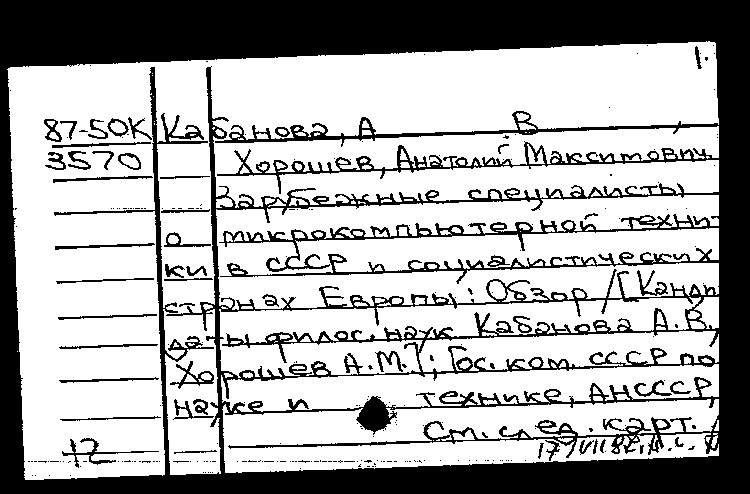 1.
87-50К Кабанова, А В ,
3570 Хорошев, Анатолий Максимович.
Зарубежные специалисты
о микрокомпьютерной техни-
ки в СССР и социалистических
странах Европы: Обзор / [Канди
даты филос. наук Кабанова А.В.,
Хорошев А.М.]; Гос. ком. СССР по
науке и технике, АНСССР,
См. след. карт. /
12